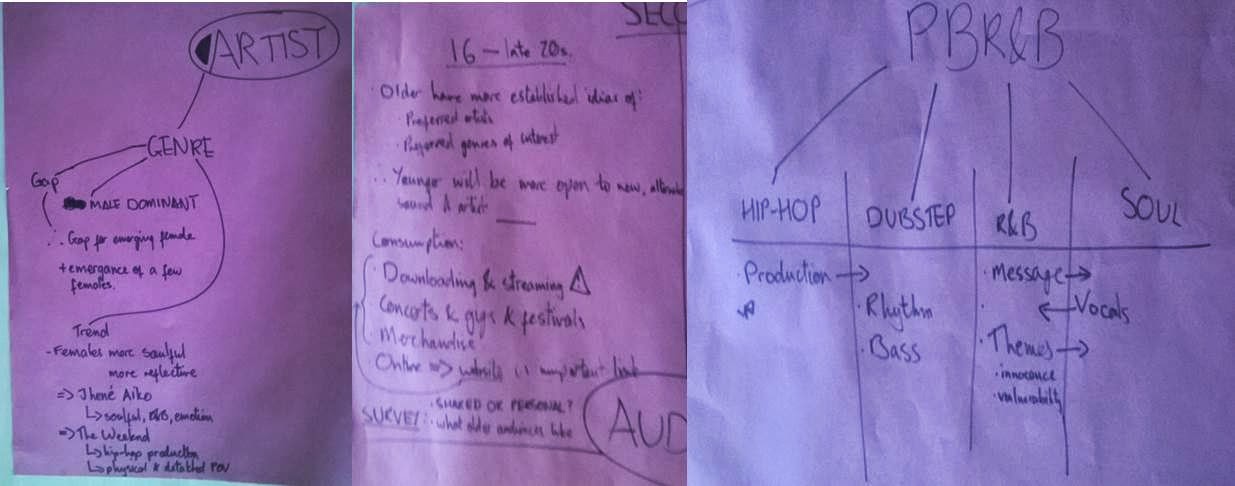 ARTIST
GENRE
Gap
MALE DOMINANT
∴ Gap for emerging female
+ emergance of a few
females.
Trend
- Females more soulful
more reflective
=> Jhené Aiko
↳ soulful, R&B, emotion
=> The Weeknd
↳ hip-hop production
↳ physical & detatched POV
SECO
16 - late 20s.
· Older have more established ideas of:
· Preferred artists
· Preferred genres of interest
∴ Younger will be more open to new, alternate
sound & artists
Consumption:
· Downloading & streaming
· Concerts & gigs & festivals
· Merchandise
· Online => website is important link
SURVEY: · SHARED OR PERSONAL?
· what older audiences like
AUD
PBR&B
HIP-HOP
DUBSTEP
R&B
SOUL
· Production →
· Rhythm
· Bass
· Message →
· ← Vocals
· Themes →
· innocence
· vulnerability